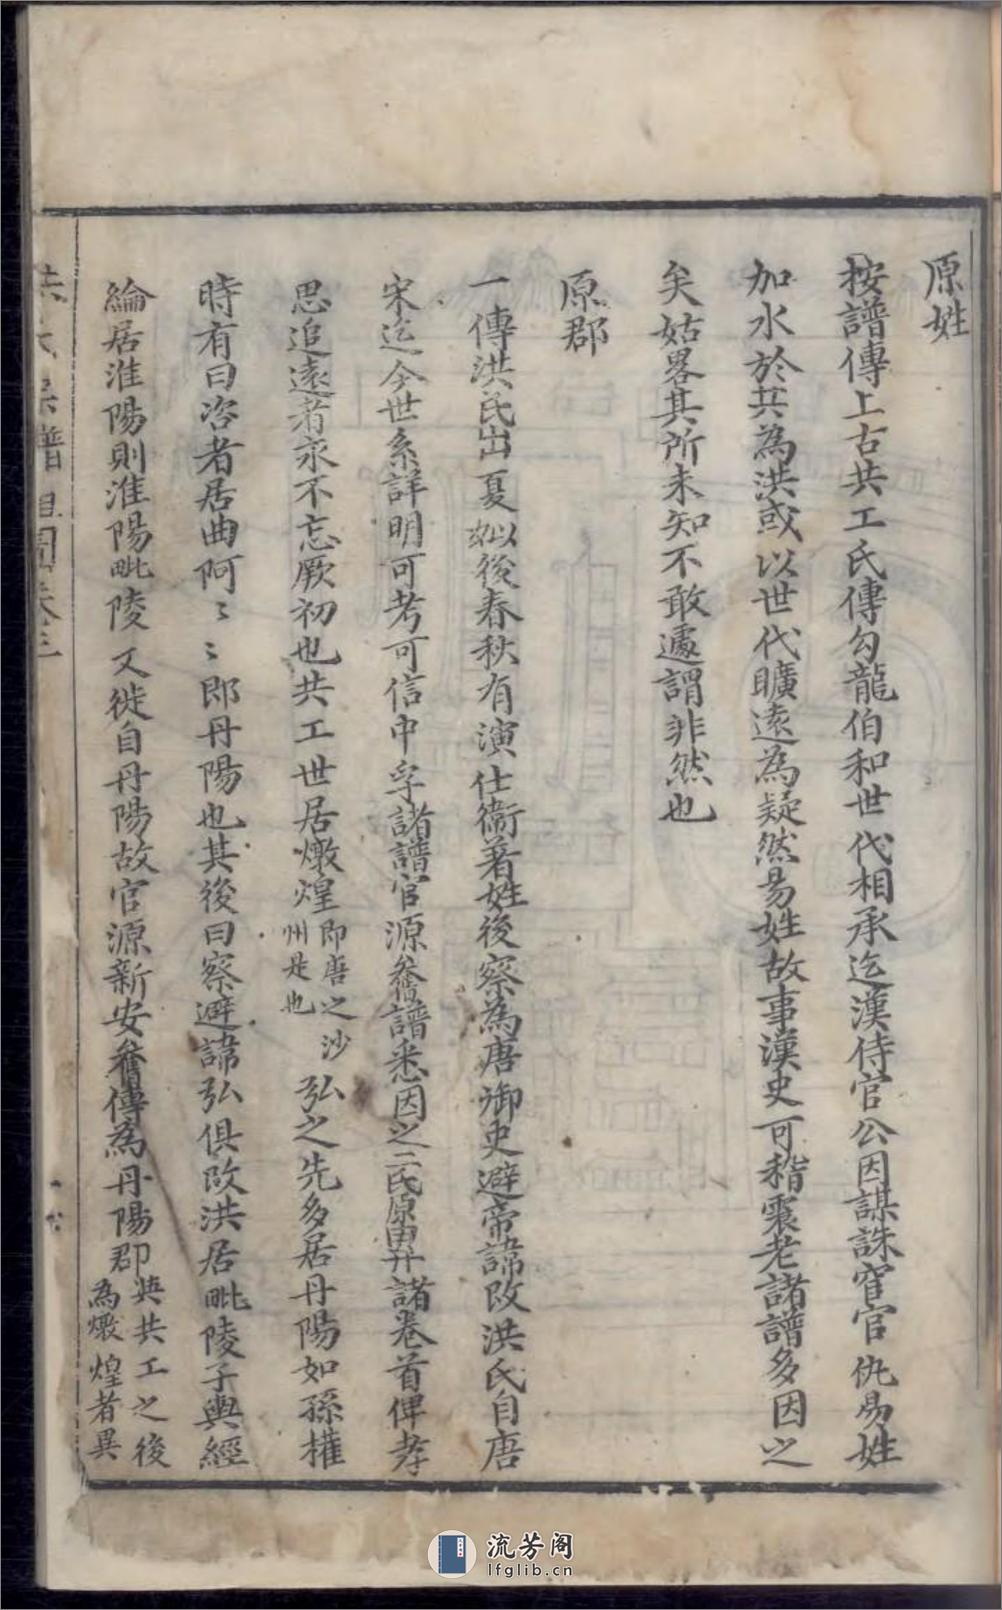 原姓
按譜傳上古共工氏傳勾龍伯和世代相承迄漢侍官公因謀誅宦官仇易姓
加水於共為洪或以世代曠遠為疑然易姓故事漢史可稽裵老諸譜多因之
矣姑畧其所未知不敢遽謂非然也
原郡
一傳洪氏出夏姒後春秋有演仕衞著姓後察為唐御史避帝諱改洪氏自唐
宋迄今世系詳明可考可信中孚諸譜官源舊譜悉因之二氏原曳弁諸卷首俾孝
思追遠者永不忘厥初也共工世居燉煌即唐之沙州是也弘之先多居丹陽如孫權
時有曰咨者居曲阿〻〻即丹陽也其後曰察避諱弘俱改洪居毗陵子與經
綸居淮陽則淮陽毗陵又徙自丹陽故官源新安舊傳為丹陽郡與共工之後為燉煌者異
洪氏宗譜 卷三
流芳阁
lfglib.cn